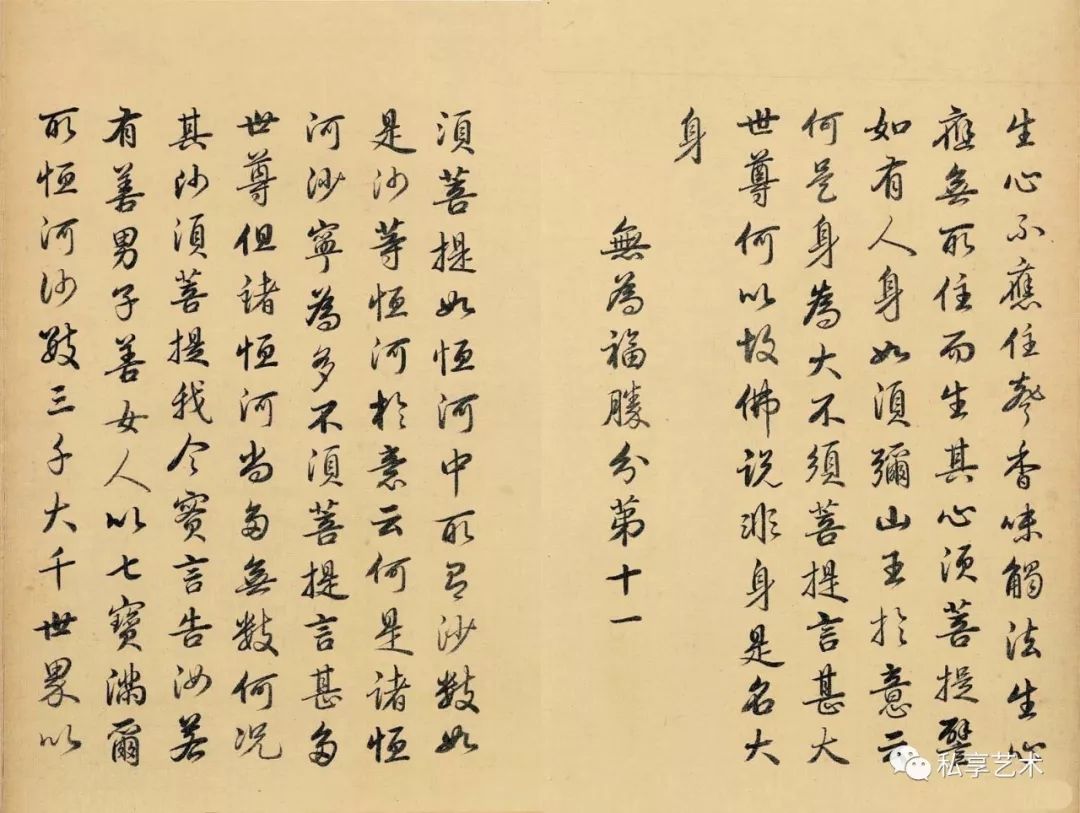 生心不應住聲香味觸法生心
應無所住而生其心須菩提譬
如有人身如須彌山王於意云
何是身為大不須菩提言甚大
世尊何以故佛說非身是名大
身
無為福勝分第十一
須菩提如恒河中所有沙數如
是沙等恒河於意云何是諸恒
河沙寧為多不須菩提言甚多
世尊但諸恒河尚多無數何況
其沙須菩提我今實言告汝若
有善男子善女人以七寶滿爾
所恒河沙數三千大千世界以
私享艺术